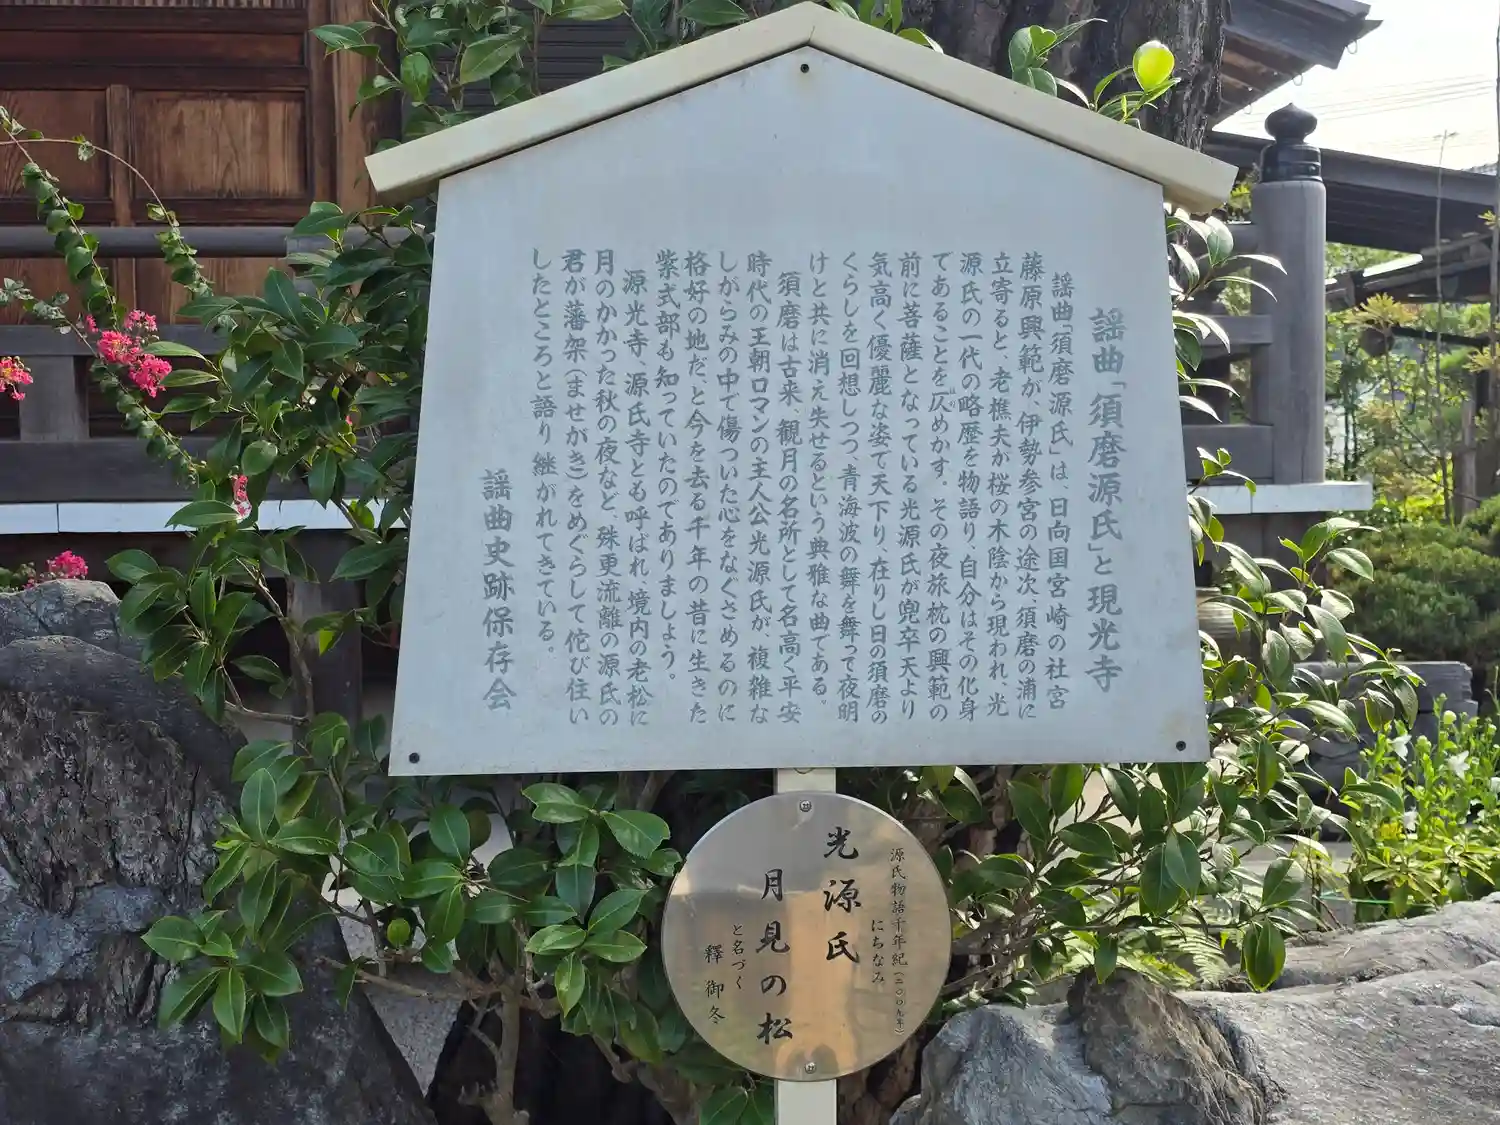 謡曲「須磨源氏」と現光寺
謡曲「須磨源氏」は、日向国宮崎の社宮
藤原興範が、伊勢参宮の途次、須磨の浦に
立寄ると、老樵夫が桜の木陰から現われ、光
源氏の一代の略歴を物語り、自分はその化身
であることを仄めかす。その夜旅枕の興範の
前に菩薩となっている光源氏が兜卒天より
気高く優麗な姿で天下り、在りし日の須磨の
くらしを回想しつつ、青海波の舞を舞って夜明
けと共に消え失せるという典雅な曲である。
須磨は古来、観月の名所として名高く平安
時代の王朝ロマンの主人公光源氏が、複雑な
しがらみの中で傷ついた心をなぐさめるのに
格好の地だ、と今を去る千年の昔に生きた
紫式部も知っていたのでありましょう。
源光寺、源氏寺とも呼ばれ、境内の老松に
月のかかった秋の夜など、殊更流離の源氏の
君が藩架(ませがき)をめぐらして侘び住い
したところと語り継がれてきている。
謡曲史跡保存会
源氏物語千年紀(二〇〇九年)
にちなみ
光源氏
月見の松
と名づく
釋御冬